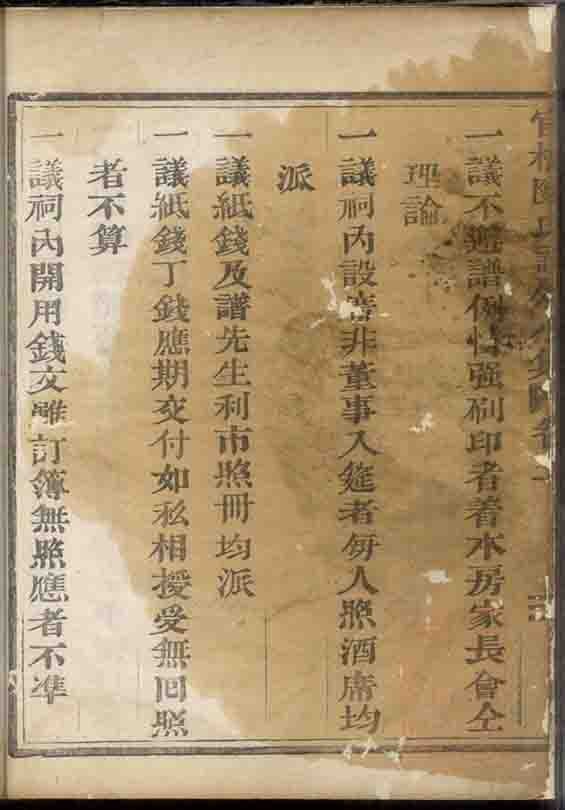 一議不遵譜例恃強刷印者着本房家長會仝
理論
一議祠內設席非董事入筵者每人照酒席均
派
一議紙錢及譜先生利市照冊均派
一議紙錢丁錢應期交付如私相授受無回照
者不算
一議祠內開用錢文雖訂簿無照應者不準